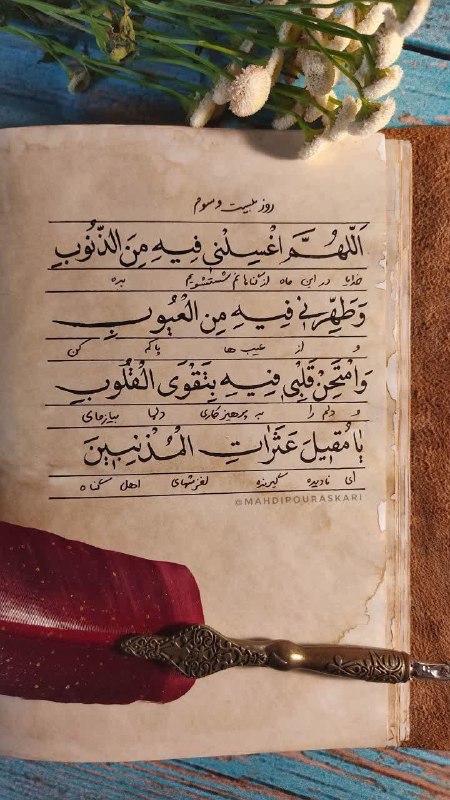 روز بیست و سوم
اَللّهُمَّ اغْسِلْنی فیهِ مِنَ الذُّنُوبِ
خدایا در این ماه از گناهانم شستشویم بده
وَ طَهِّرْنی فیهِ مِنَ الْعُیُوبِ
و از عیب ها پاکم کن
وَ امْتَحِنْ قَلْبی فیهِ بِتَقْوَی الْقُلُوبِ
و دلم را به پرهیزکاری دلها بیازمای
یا مُقیلَ عَثَراتِ الْمُذْنِبینَ
ای نادیده گیرنده لغزشهای اهل گناه
@MAHDIPOURASKARI